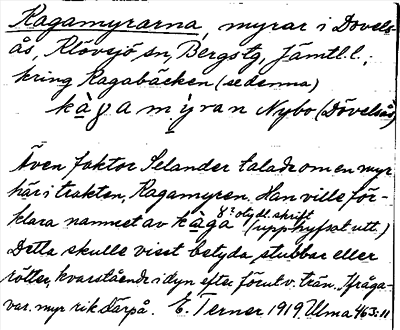 Kagamyrarna, myrar i Dovels-
ås, Klövsjö sn, Bergs tg, Jämtl. l.,
kring Kagabäcken (se denna)
kàgamyran Nybo (Dövelsås)
Även faktor Selander talade om en myr
här i trakten, Kagamyren. Han ville för-
klara namnet av kàga (upp-hyfsat utt.)
8? otydl. skrift
Detta skulle visst betyda stubbar eller
rötter, kvarstående i dyn efter förutv. trän. Ifråga-
var. myr rik därpå. E. Terner 1919 Ulma 463:11